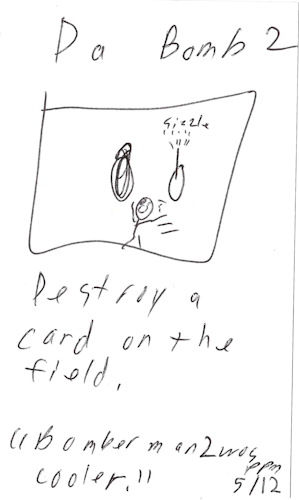 Da Bomb 2
sizzle
?
Destroy a
card on the
field.
"Bomberman 2 was
cooler."
ppm
5/12